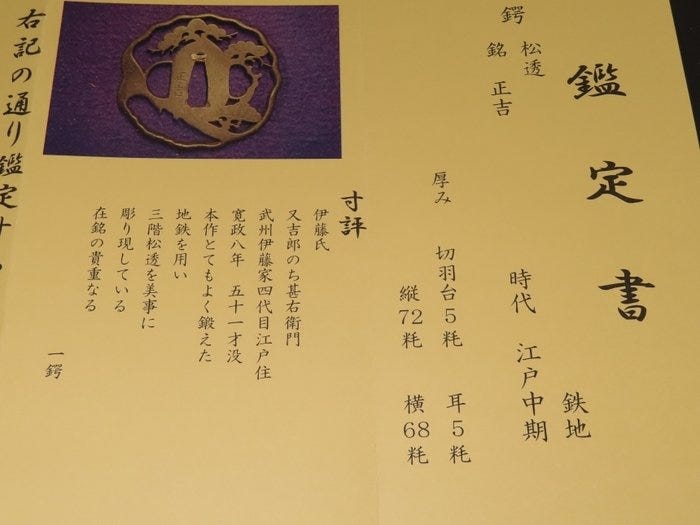 鑑定書
鉄地
時代 江戸中期
鍔 松透
銘 正吉
厚み 切羽台5粍 耳5粍
縦72粍 横68粍
寸評
伊藤氏
又吉郎のち甚右衛門
武州伊藤家四代目江戸住
寛政八年 五十一才没
本作とてもよく鍛えた
地鉄を用い
三階松透を美事に
彫り現している
在銘の貴重なる
一鍔
右記の通り鑑定す
正吉